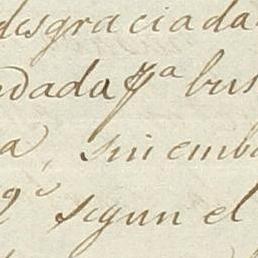 desgraciada
edada pa bus
a, sin emba
qe segun el